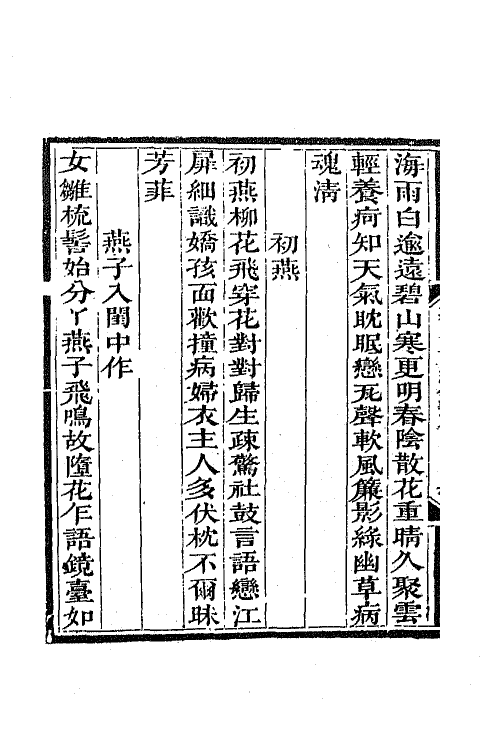 海雨白逾遠碧山寒更明春陰散花重晴久聚雲
輕養疴知天氣耽眠戀瓦聲軟風簾影綠幽草病
魂淸
初燕
初燕柳花飛穿花對對歸生疎驚社鼓言語戀江
扉細識嬌孩面歡撞病婦衣主人多伏枕不爾昧
芳菲
燕子入閨中作
女雛梳髻始分丫燕子飛鳴故墮花乍語鏡臺如